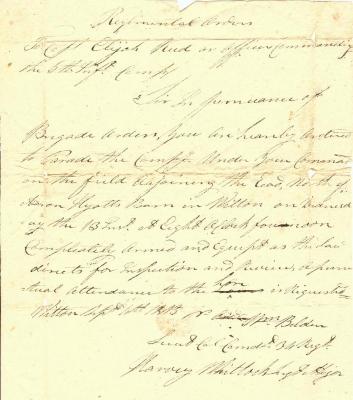 Regimental Orders
To Capt Elijah Reed or officer Commanding
the 5th Inft. Compy
Sir In pursuance of
Brigade Orders, you are hereby ordered
to Parade the Compy. Under your Command
on the field adjoining the Road, North of
Aaron Hyatts Barn in Wilton on Wednes
day the 15 Inst. at Eight oClock forenoon
Compleatly Armed and Equipt as the Law
directs for Inspection and Review, a punc
tual attendance to the hour is requested
Wilton Sept. 1813 Pr Belden
Lieut Col Comdt. 34 Regt.
Harvey Whitlock